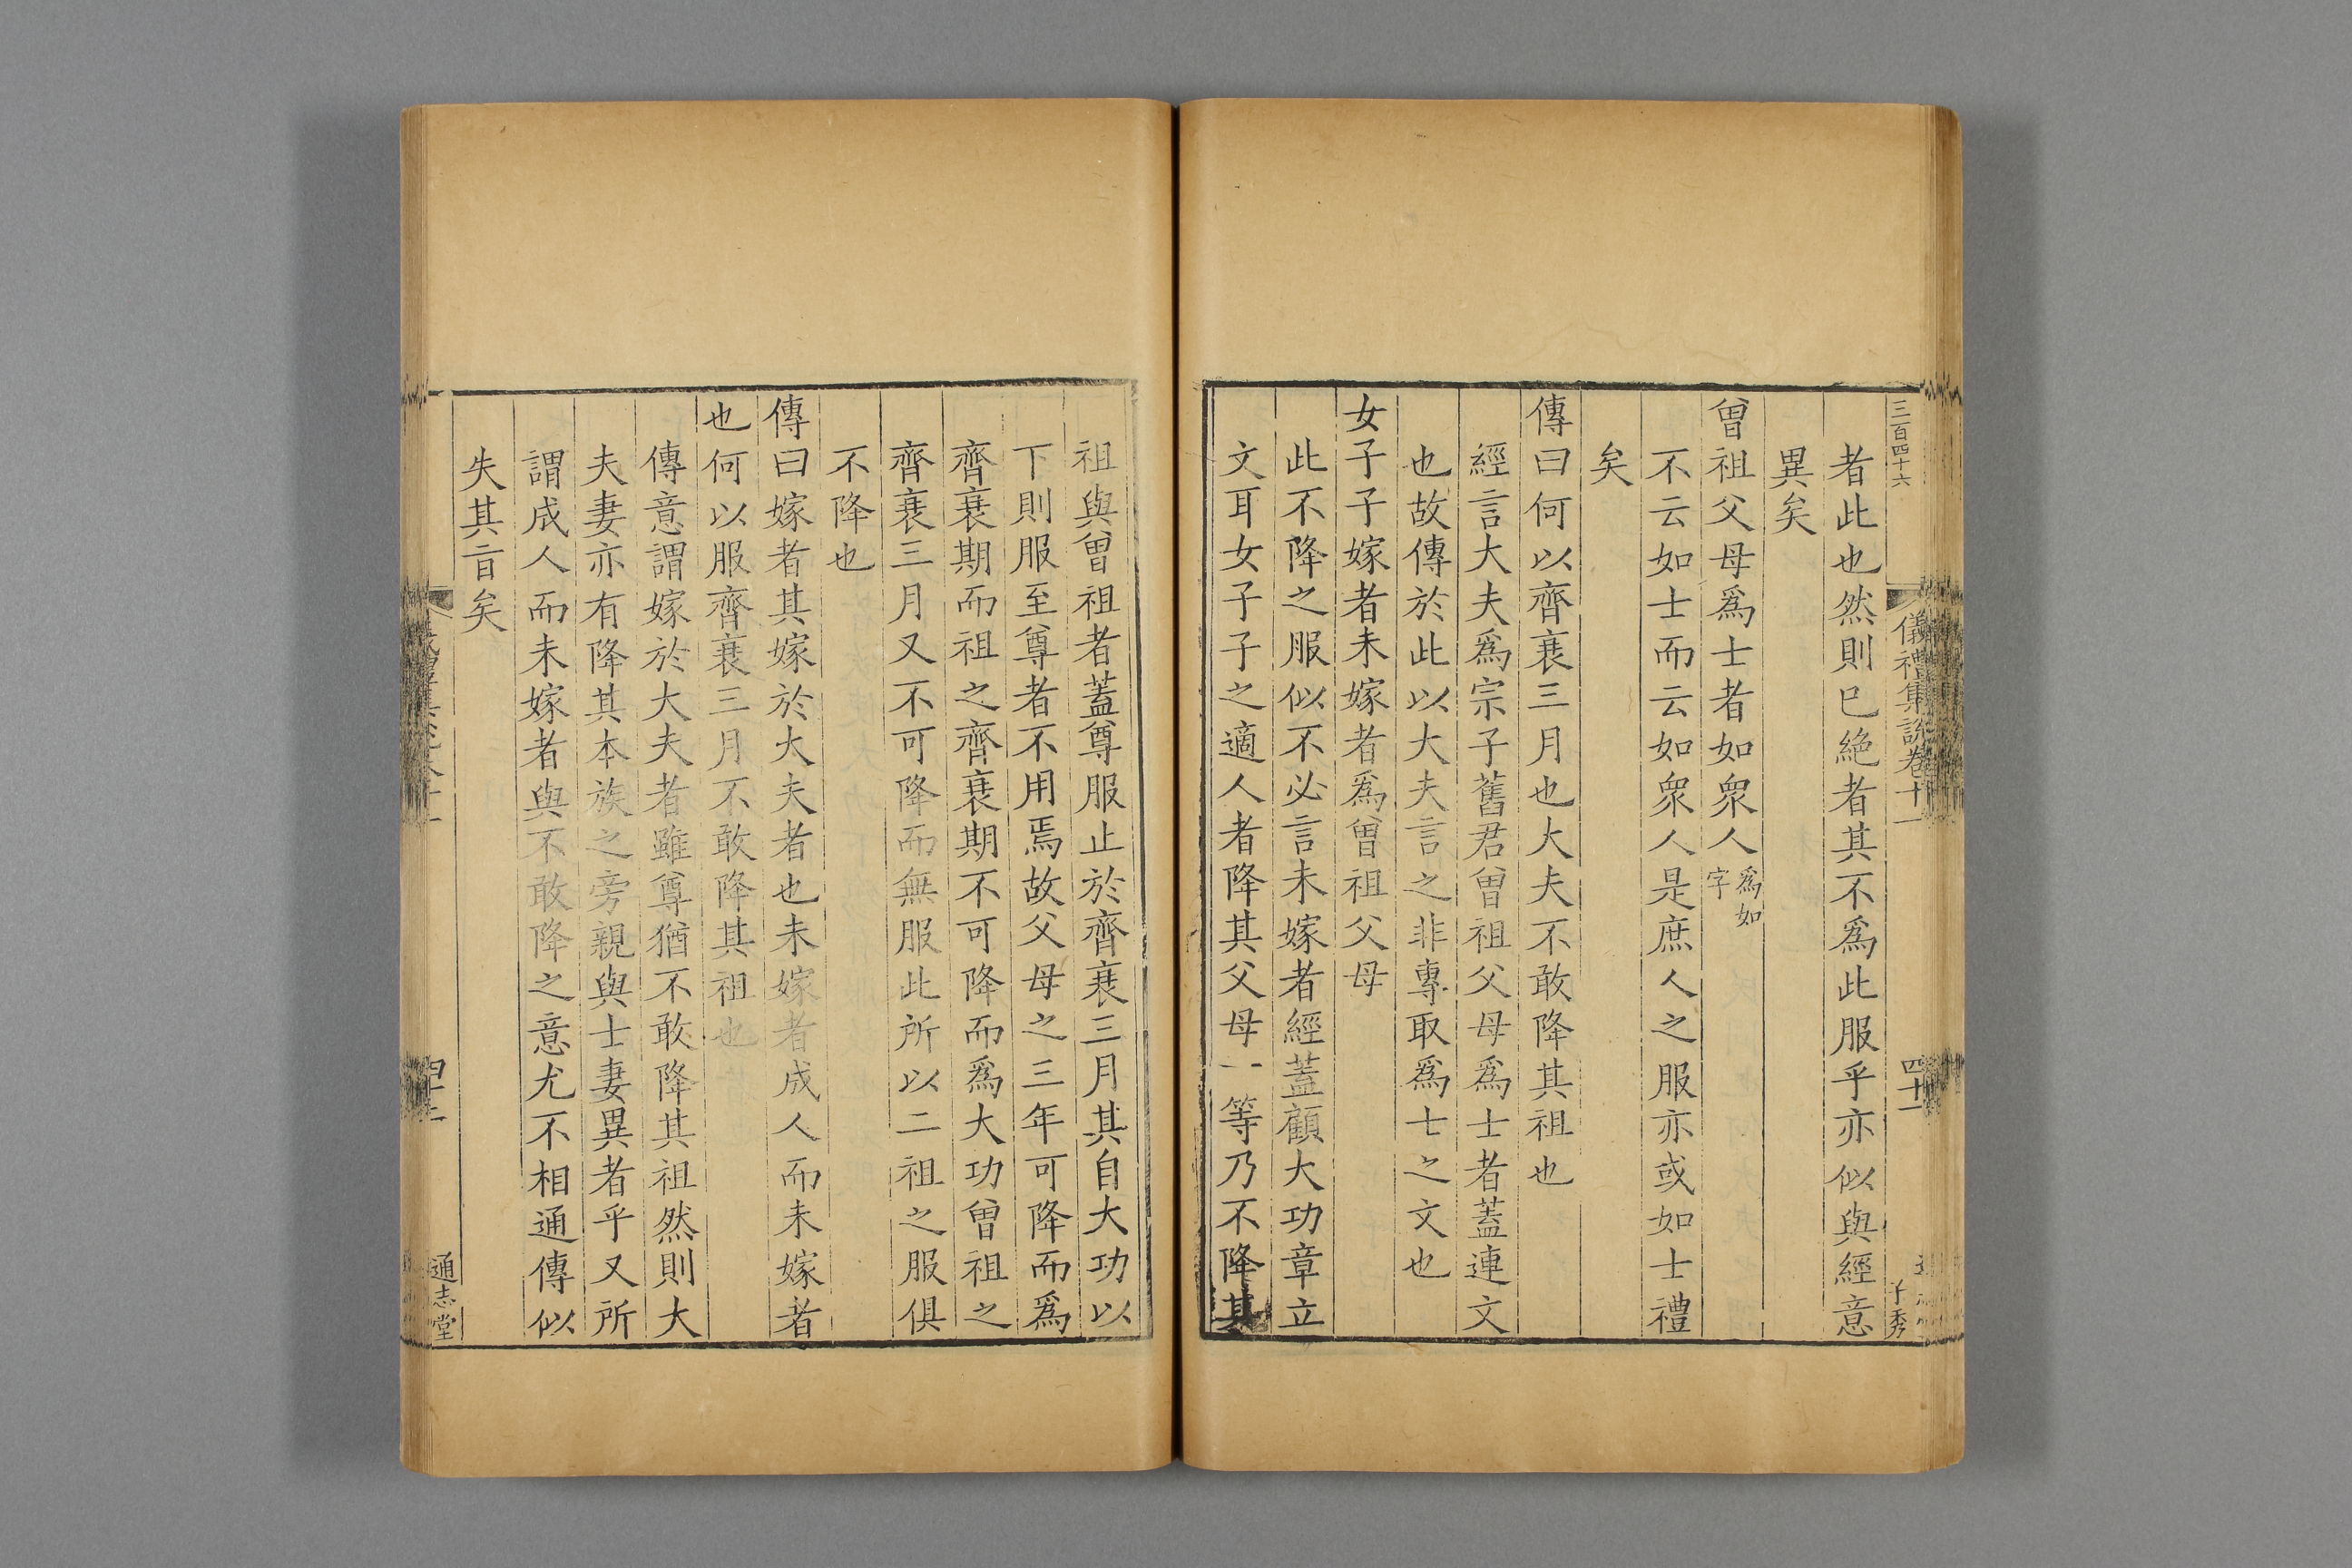 三百四十六
儀禮集說卷十一
四十一
子秀
者此也然則已絶者其不爲此服乎亦似與經意
異矣
曾祖父母爲士者如衆人爲如字
不云如士而云如衆人是庶人之服亦或如士禮
矣
傳曰何以齊衰三月也大夫不敢降其祖也
經言大夫爲宗子舊君曾祖父母爲士者蓋連文
也故傳於此以大夫言之非專取爲士之文也
女子子嫁者未嫁者爲曾祖父母
此不降之服似不必言未嫁者經蓋顧大功章立
文耳女子子之適人者降其父母一等乃不降其
祖與曾祖者蓋尊服止於齊衰三月其自大功以
下則服至尊者不用焉故父母之三年可降而爲
齊衰期而祖之齊衰期不可降而爲大功曾祖之
齊衰三月又不可降而無服此所以二祖之服俱
不降也
傳曰嫁者其嫁於大夫者也未嫁者成人而未嫁者
也何以服齊衰三月不敢降其祖也
傳意謂嫁於大夫者雖尊猶不敢降其祖然則大
夫妻亦有降其本族之旁親與士妻異者乎又所
謂成人而未嫁者與不敢降之意尤不相通傳似
失其旨矣
通志堂